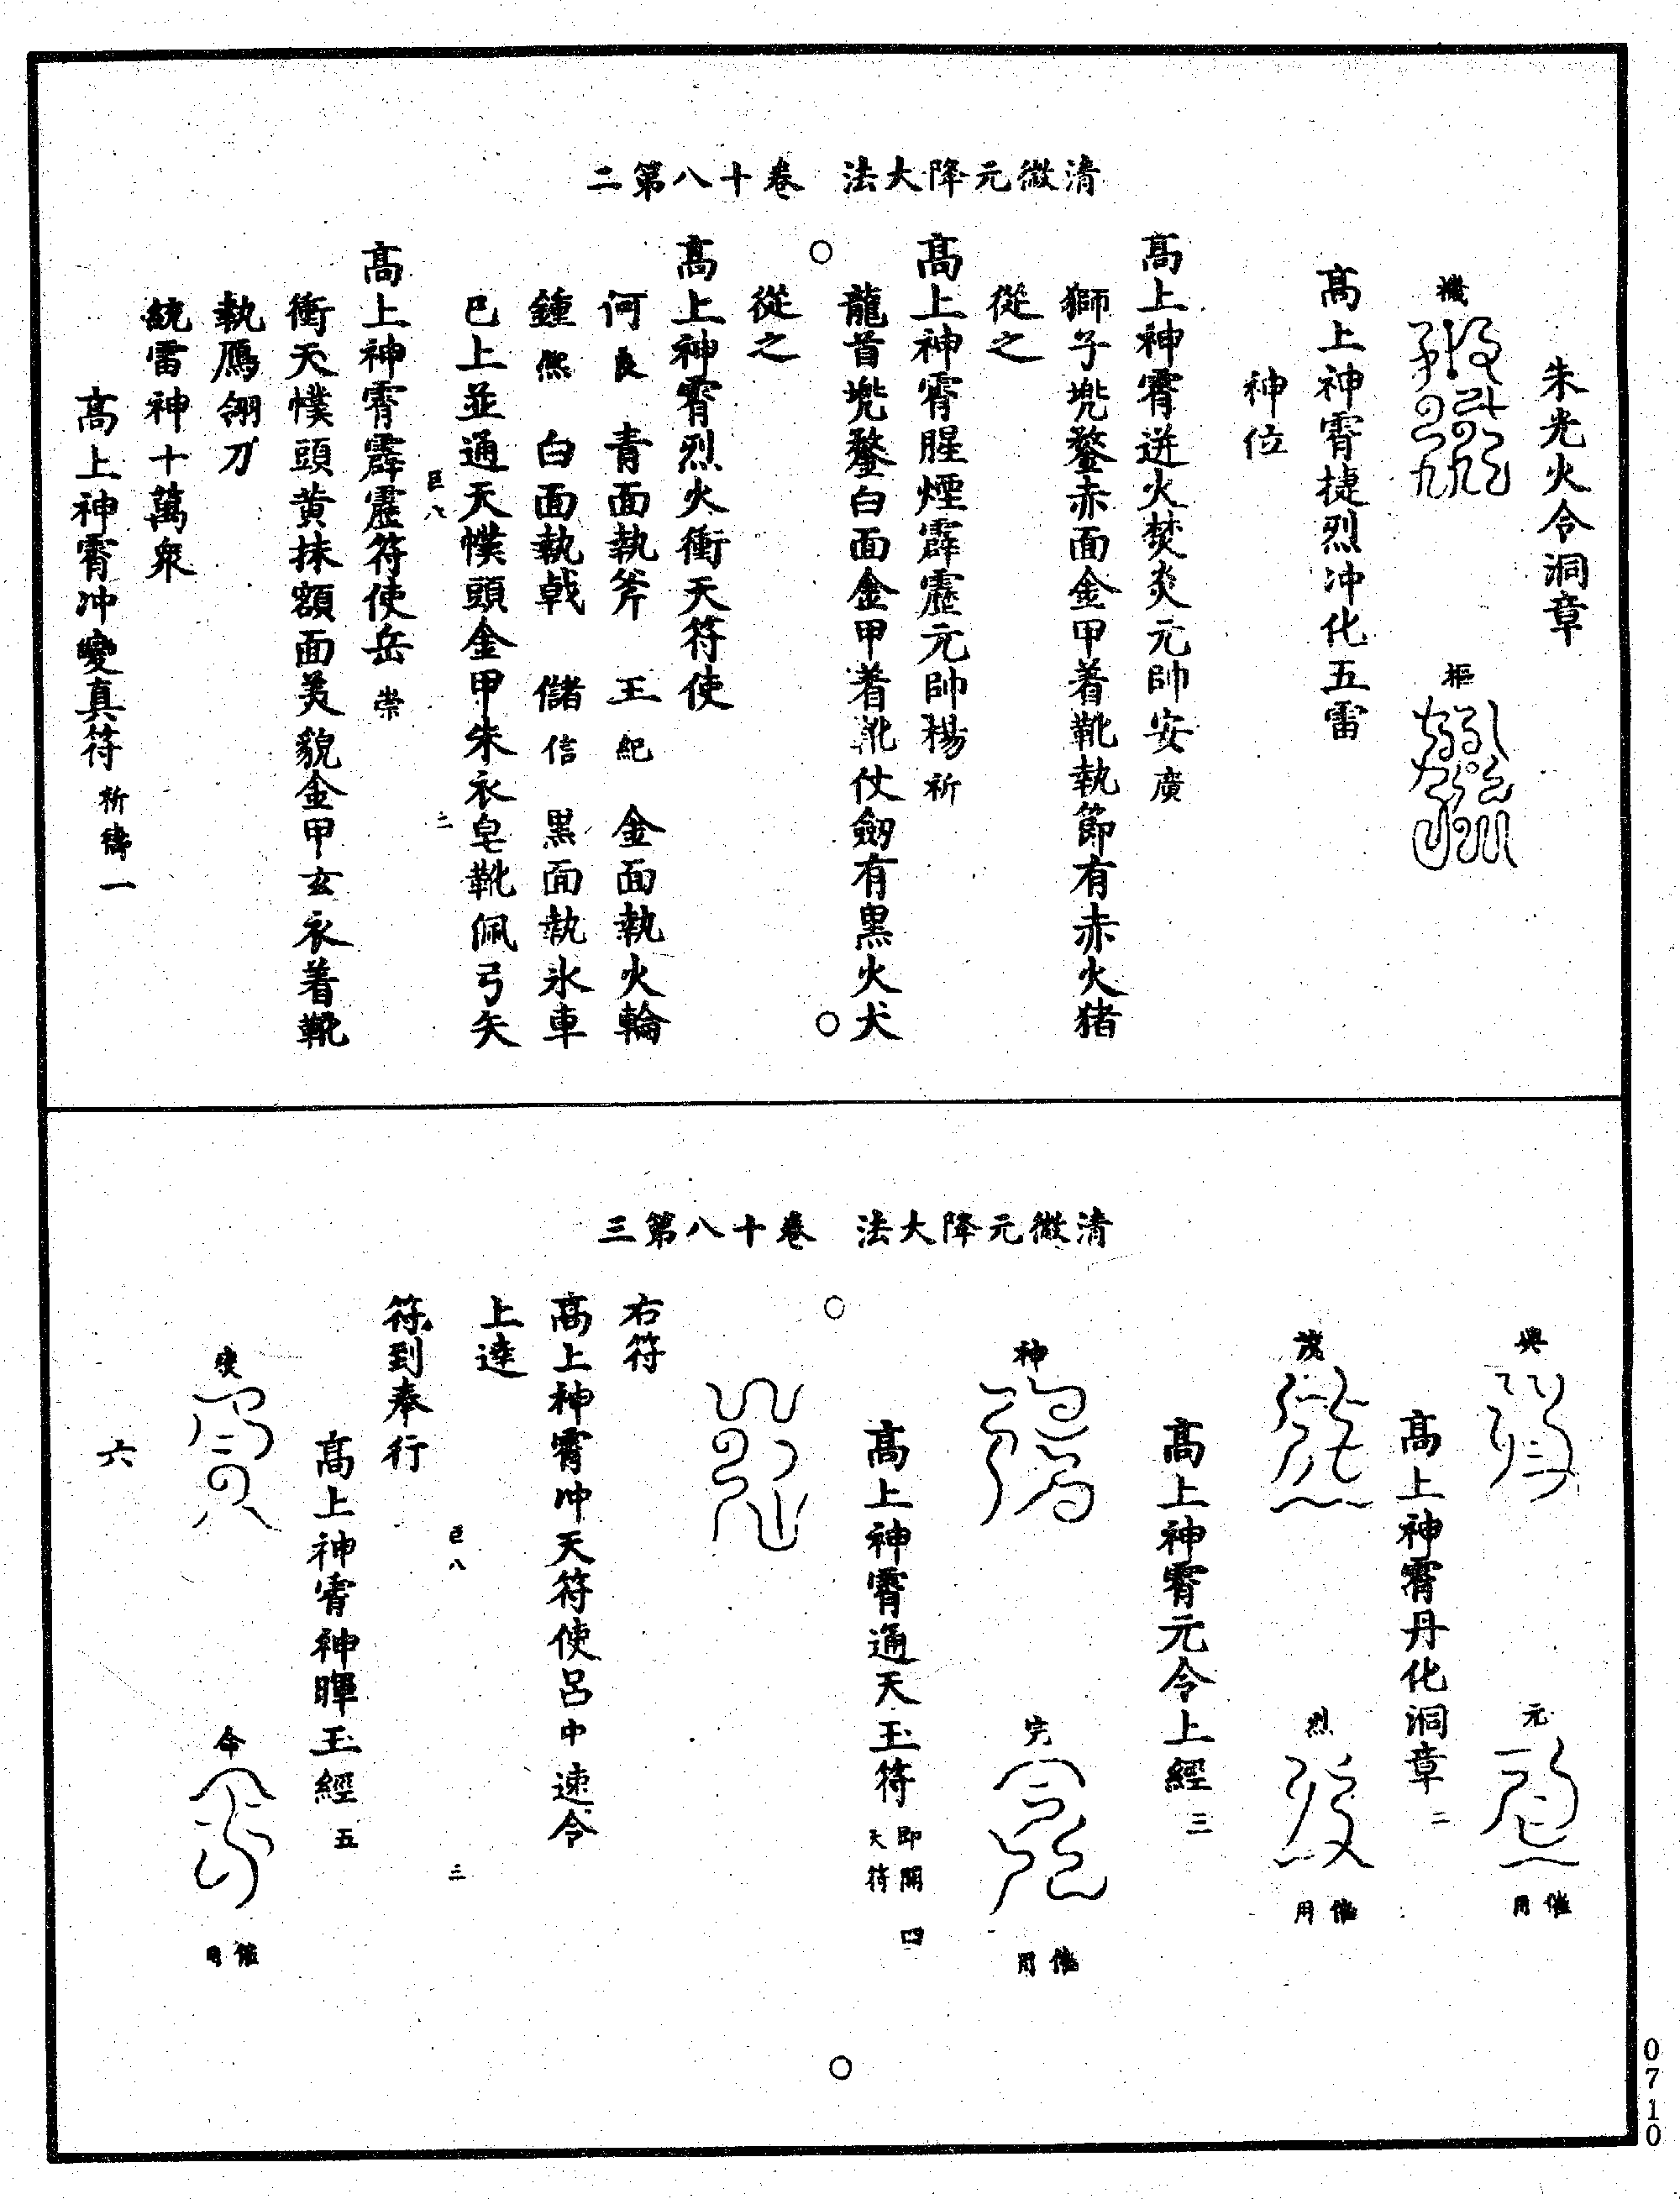 清微元降大法　卷十八第二
朱光火令洞章
機　樞
高上神霄捷烈冲化五雷
神位
高上神霄迸火焚炎元帥安廣
獅子兠鍪赤面金甲着靴執節有赤火猪
從之
高上神霄腥煙霹靂元帥楊祈
龍首兠鍪白面金甲着靴仗劒有黑火犬
從之
高上神霄烈火衝天符使
何良　青面執斧　王紀　金面執火輪
鍾熊　白面執戟　儲信　黑面執氷車
已上並通天幞頭金甲朱衣皂靴佩弓矢
巨八　二
高上神霄霹靂符使岳崇
衝天幞頭黃抹額面美貌金甲玄衣着靴
執鴈翎刀
統雷神十萬衆
高上神霄冲變真符　祈禱一
清微元降大法　卷十八第三
興　元　催用
高上神霄丹化洞章　二
茂　烈　催用
高上神霄元令上經　三
神　完　催用
高上神霄通天玉符　即開天符　四
右符
高上神霄冲天符使呂中速令
上達
符到奉行
巨八　三
高上神霄神暉玉經　五
命　催用
六
0710